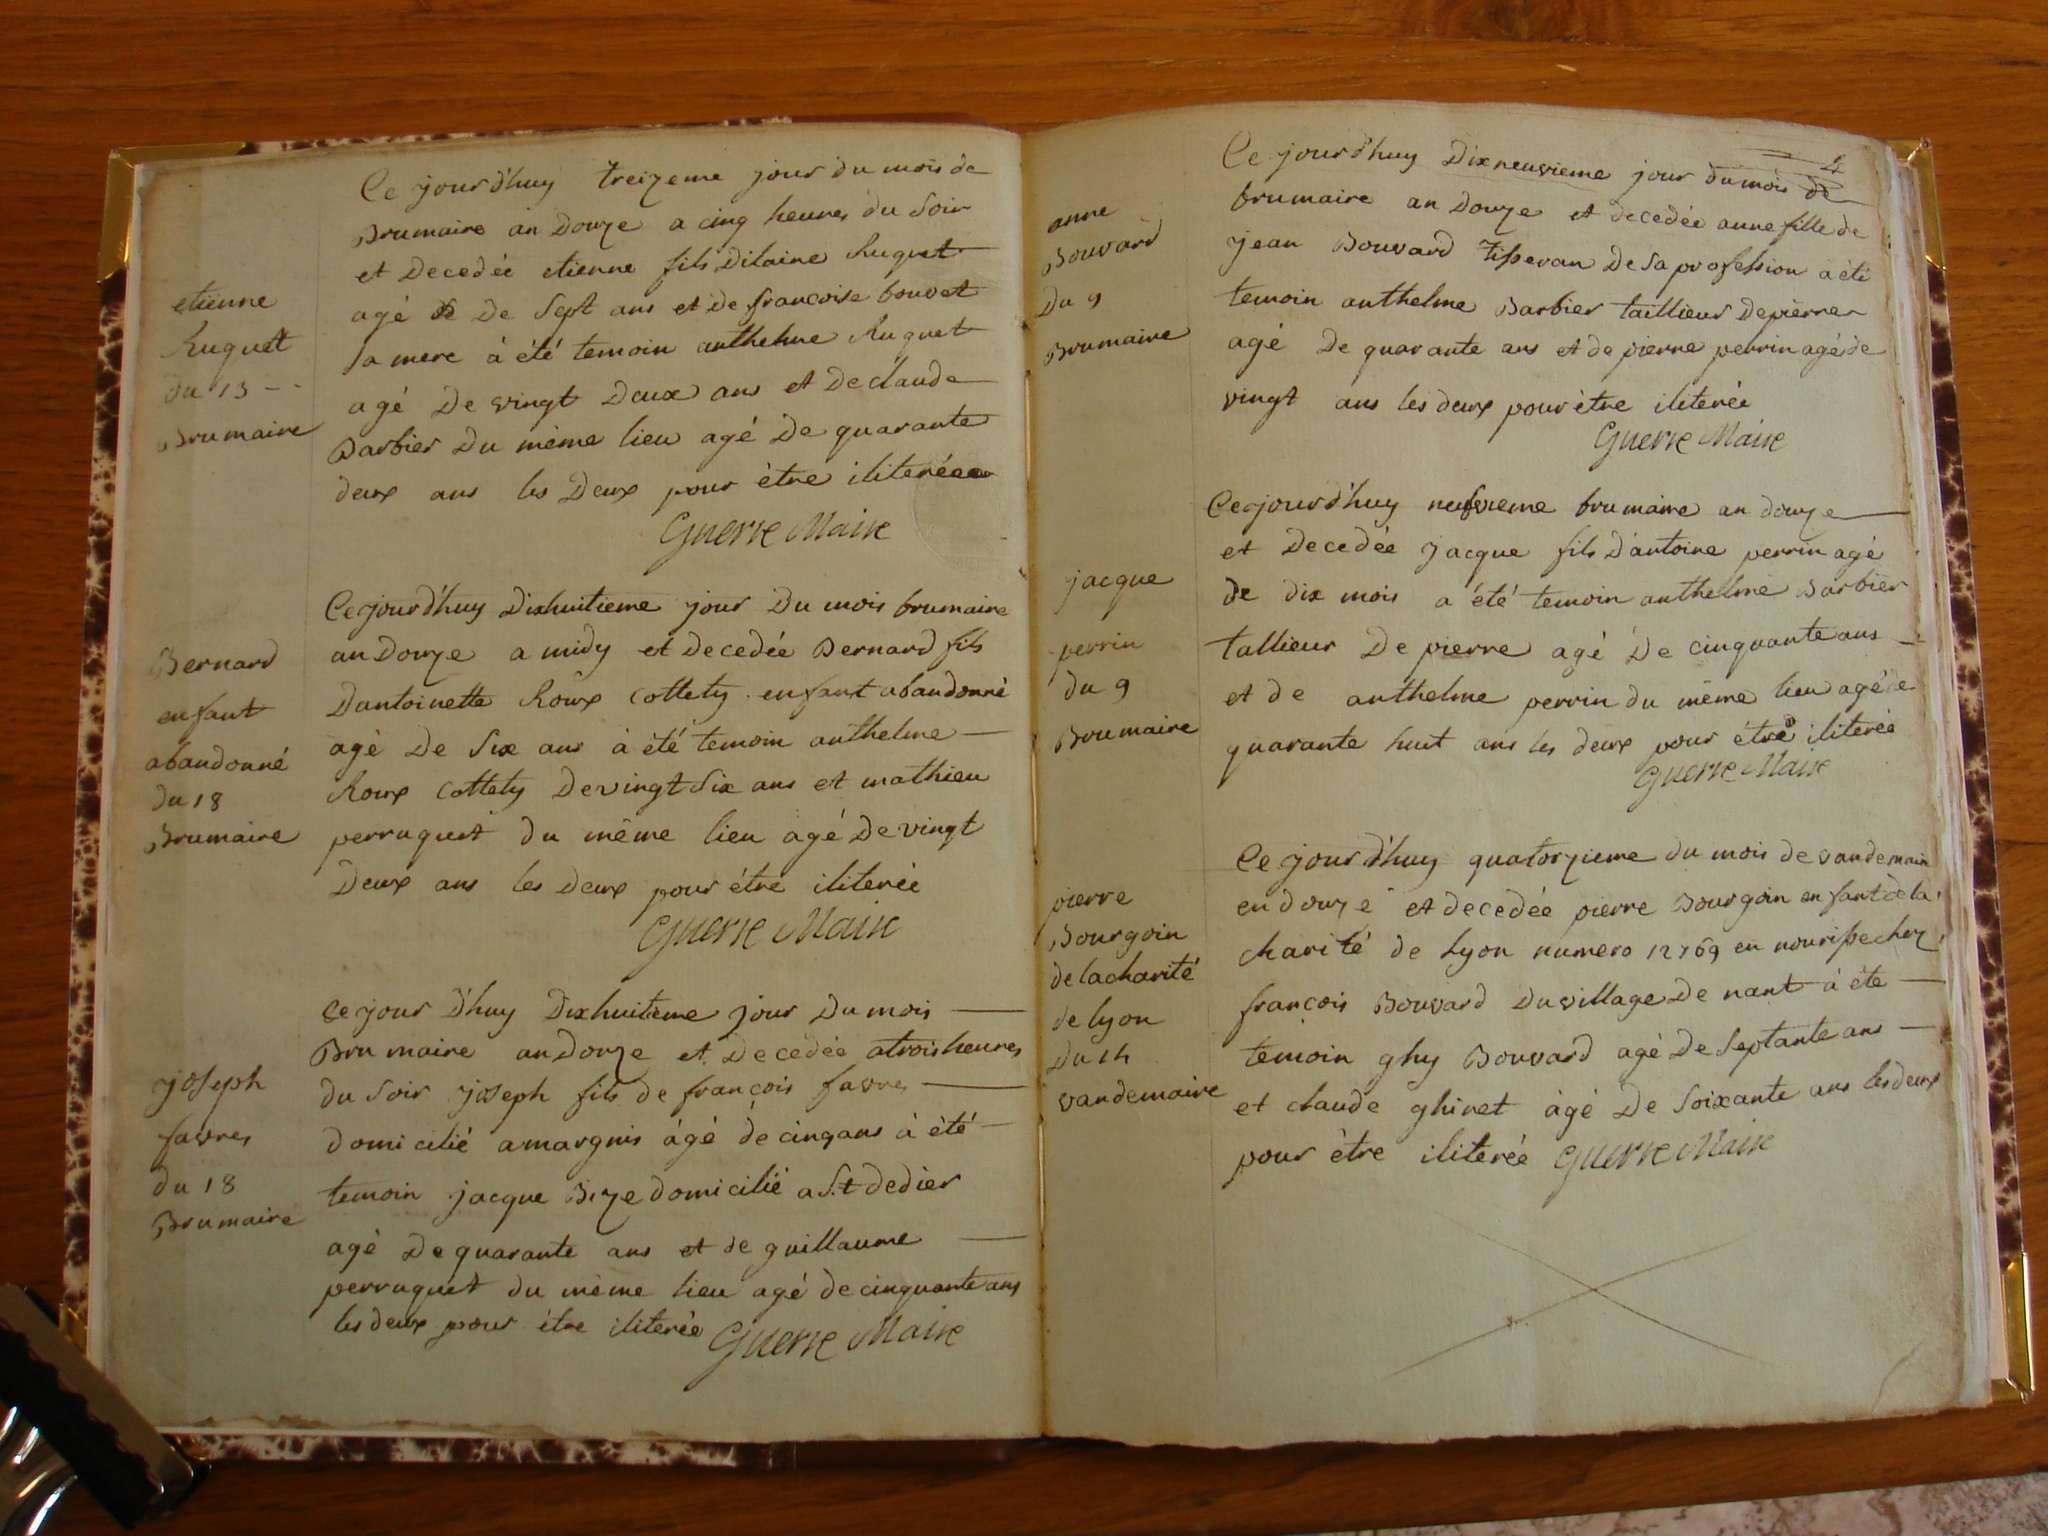 etienne
Ruguet
du 13
Brumaire
Ce jourd'huy treizeme jour du mois de
Brumaire an Douze a cinq heures du Soir
et Decedée etienne fils Dilaire Ruguet
agé de De Sept ans et de francoise bouvet
Sa mere à été temoin anthelme Ruguet
agé De vingt Deux ans et De claude
Barbier Du même lieu agé De quarante
deux ans les Deux pour être iliterée
Guerre Maire
Bernard
enfant
abandonné
du 18
Brumaire
Cejourd'huy Dixhuitieme jour Du mois brumaire
an Douze a midy et decedée Bernard fils
Dantoinette Roux cottety enfant abandonné
agé De Six ans à été temoin anthelme
Roux cottety De vingt Six ans et mathieu
perruquet du même lieu agé De vingt
Deux ans les Deux pour être iliterée
Guerre Maire
joseph
favres
du 18
Brumaire
Ce jour D'huy Dixhuitieme jour Du mois
Brumaire an Douze et Decedée a trois heures
du Soir joseph fils de françois favres
domicilié a margnis àgé de cinq ans à été
temoin jacque Bize domicilié a S.t dedier
agé De quarante ans et de guillaume
perruquet du même lieu agé de cinquante ans
les deux pour être iliterée Guerre Maire
4
anne
Bouvard
Du 9
Brumaire
Ce jourd'huy Dixneuvieme jour du mois de
brumaire an Douze et decedée anne fille de
jean Bouvard Tisseran De Sa profession a été
temoin anthelme Barbier taillieur De pierre
agé De quarante ans et de pierre perrin agé de
vingt ans les deux pour être iliterée
Guerre Maire
jacque
perrin
du 9
Brumaire
Cejourd'huy neufvieme brumaire an douze
et Decedée jacque fils D'antoine perrin agé
de dix mois a été temoin anthelme Barbier
tallieur De pierre agé De cinquante ans
et de anthelme perrin du même lieu agé de
quarante huit ans les deux pour étre iliterée
Guerre Maire
pierre
Bourgoin
de la charité
de lyon
Du 14
vandemaire
Ce jourd'huy quatorzieme du mois de vandemair
en douze et decedée pierre Bourgoin enfant de la
charité de Lyon numero 12769 en nourisse chez
françois Bouvard Du village De nant à éte
temoin ghy Bouvard agé De Septante ans
et claude ghinet àgé De Soixante ans les deux
pour être iliterée Guerre Maire